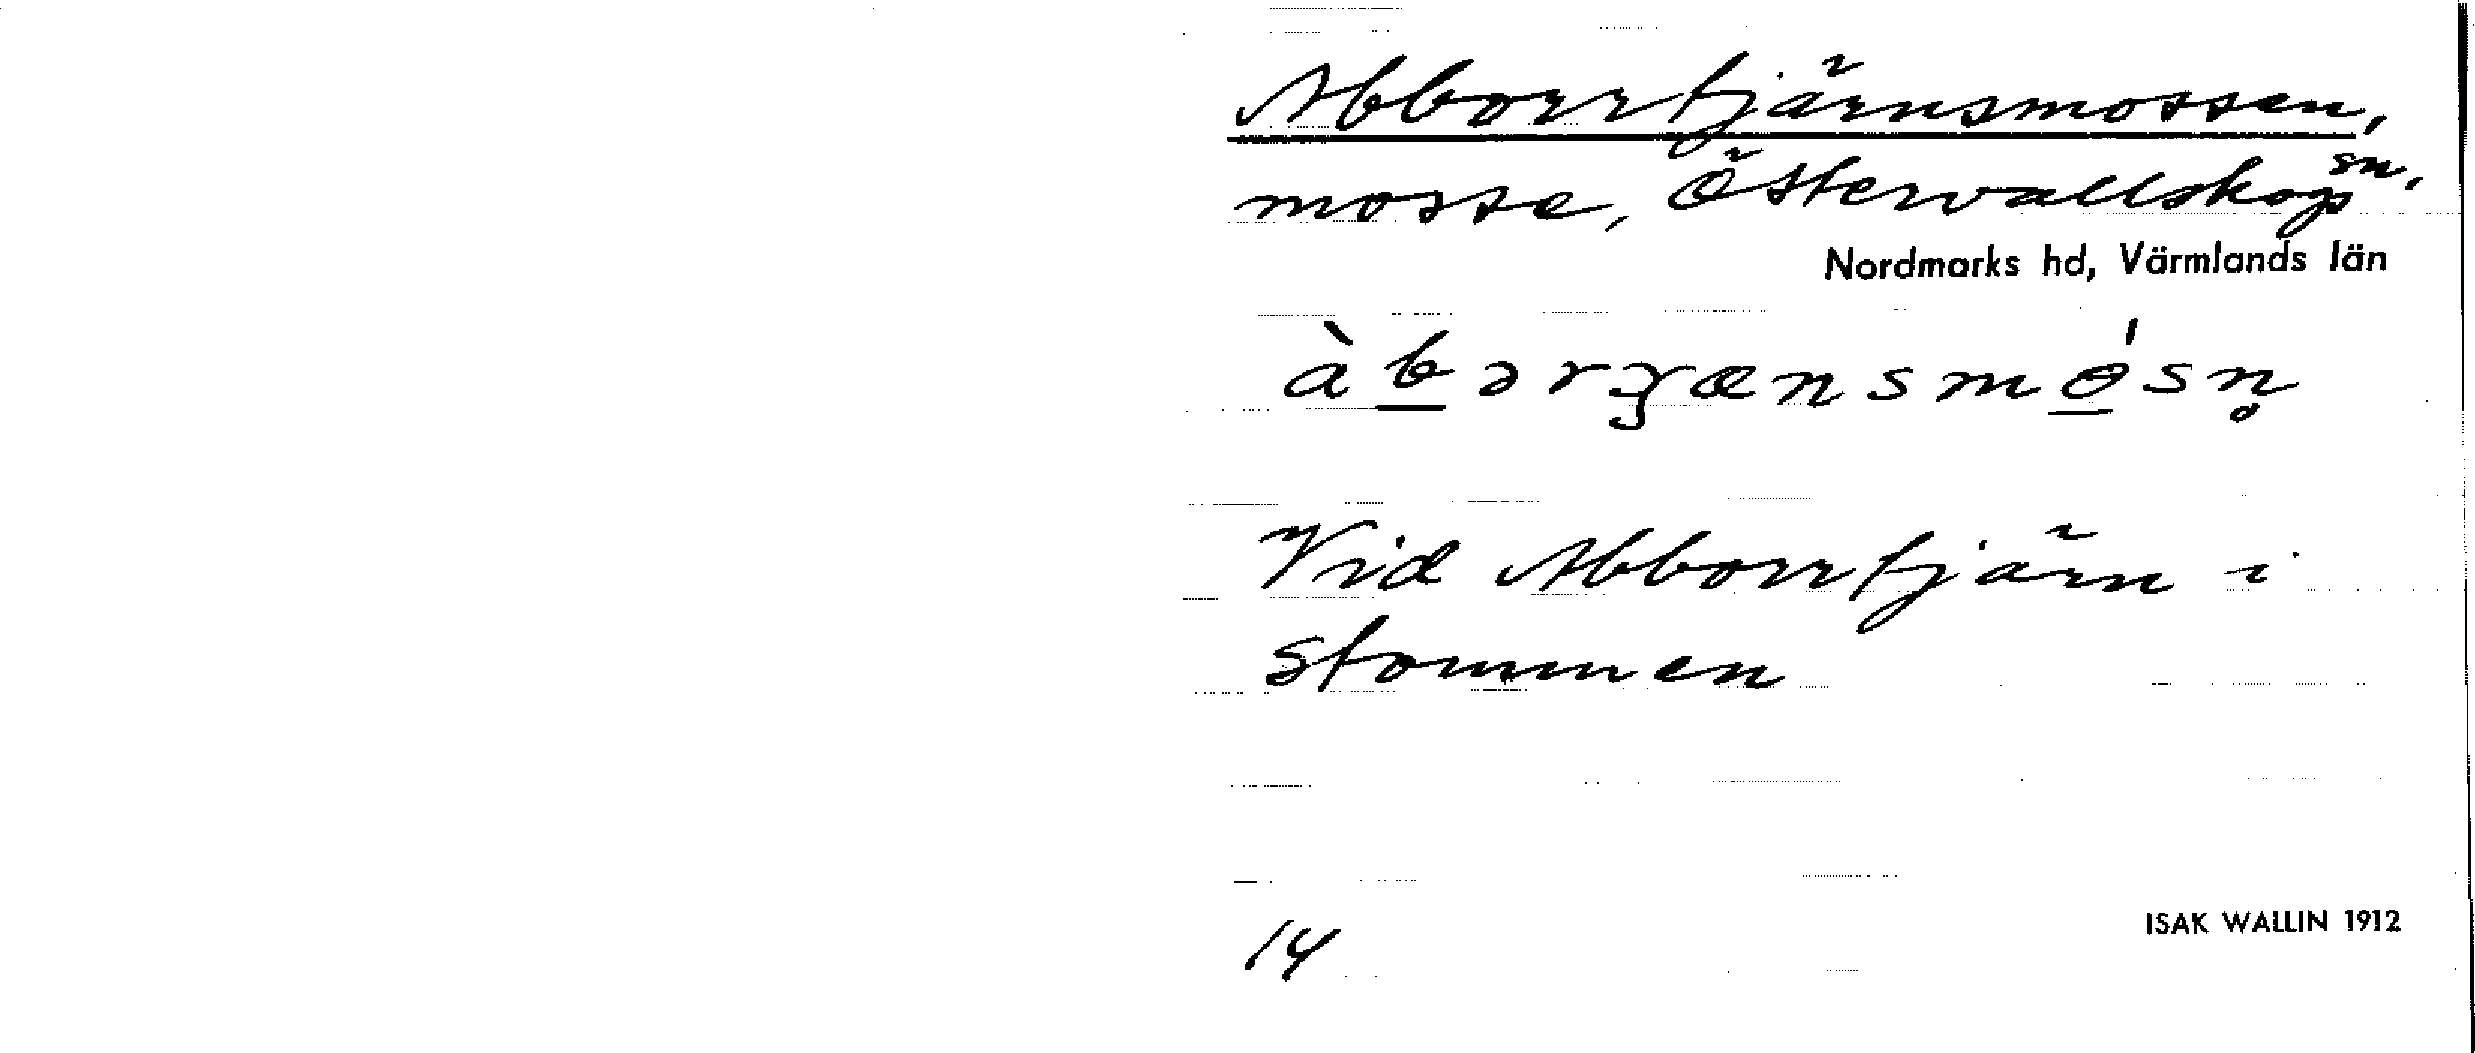 Abborrtjärnsmossen,
mosse, Östervallskogs sn,
Nordmarks hd, Värmlands län
Vid Abborrtjärn i
Stommen
14
ISAK WALLIN 1912